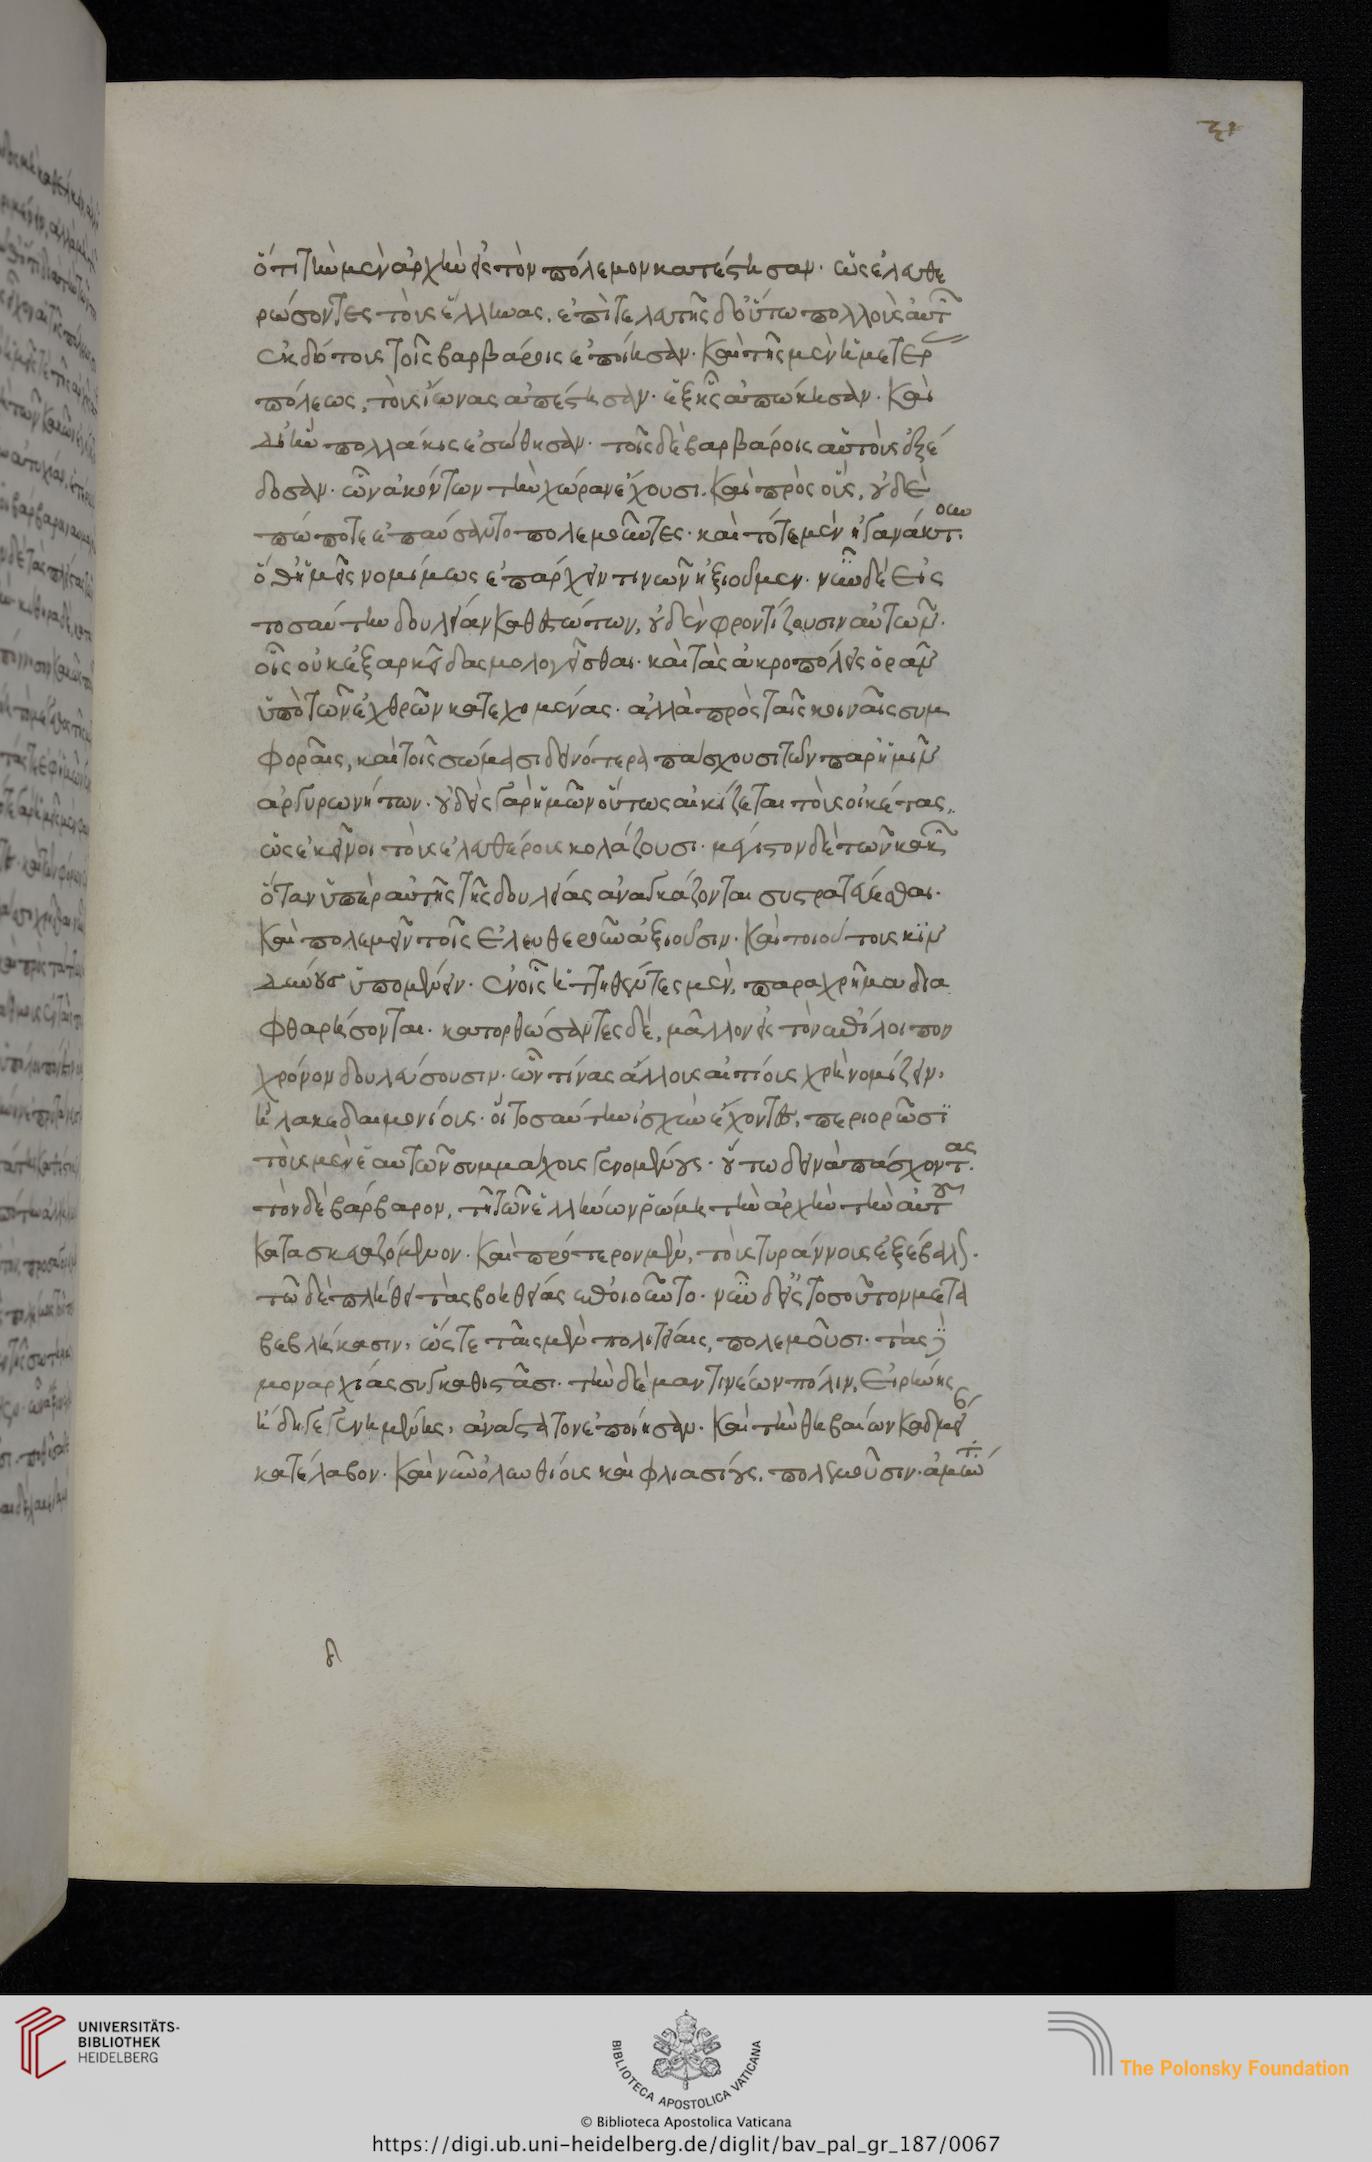 ὅτι τὴν μὲν ἀρχὴν εἰς τὸν πόλεμον κατέστησαν· ὡς ἐλευθε
ρώσοντες τοὺς ἕλληνας. ἐπὶ τελευτῆς δ' οὕτω πολλοὺς αὐτῶν
ἐκδότους τοῖς βαρβάροις ἐποίησαν· καὶ τῆς μὲν ἡμετέρ
πόλεως, τοὺς ἴωνας ἀπέστησαν· ἐξ ἧς ἀπώκησαν· καὶ
δι' ἣν πολλάκις ἐσώθησαν· τοῖς δὲ βαρβάροις αὐτοὺς ἐξέ
δοσαν· ὧν ἀκόντων τὴν χώραν ἔχουσι. καὶ πρὸς οὓς, οὐδὲ
πώποτε ἐπαύσαντο πολεμοῦντες· καὶ τότε μὲν ἠγανάκτουν
ὅθ' ἡμεῖς νομίμως ἐπάρχειν τινῶν ἠξιοῦμεν· νῦν δὲ εἰς
τοσαύτην δουλείαν καθεστώτων, οὐδὲν φροντίζουσιν αὐτῶν·
οἷς οὐκ ἐξαρκεῖ δασμολογεῖσθαι· καὶ τὰς ἀκροπόλεις ὁρᾶν
ὑπὸ τῶν ἐχθρῶν κατεχομένας· ἀλλὰ πρὸς ταῖς κοιναῖς συμ
φοραῖς, καὶ τοῖς σώμασι δεινότερα πάσχουσι τῶν παρ' ἡμῖν
ἀργυρωνήτων· οὐδεὶς γὰρ ἡμῶν οὕτως αἰκίζεται τοὺς οἰκέτας,
ὡς ἐκεῖνοι τοὺς ἐλευθέρους κολάζουσι· μέγιστον δὲ τῶν κακῶν
ὅταν ὑπὲρ αὐτῆς τῆς δουλείας ἀναγκάζονται συστρατεύεσθαι·
καὶ πολεμεῖν τοῖς ἐλευθεροῦν ἀξιοῦσιν· καὶ τοιούτους κιν
δύνους ὑπομένειν· ἐν οἷς ἡττηθέντες μὲν, παραχρῆμα δια
φθαρήσονται· κατορθώσαντες δὲ, μᾶλλον εἰς τὸν ἐπίλοιπον
χρόνον δουλεύσουσιν· ὧν τίνας ἄλλους αἰτίους χρὴ νομίζειν,
ἢ λακεδαιμονίους· οἳ τοσαύτην ἰσχὺν ἔχοντες, περιορῶσι
τοὺς μὲν ἑαυτῶν συμμάχους γενομένους· οὕτω δεινὰ πάσχοντας·
τὸν δὲ βάρβαρον, τῇ τῶν ἑλλήνων ῥώμη τὴν ἀρχὴν τὴν αὑτοῦ
κατασκευαζόμενον· καὶ πρότερον μὲν, τοὺς τυράννους ἐξέβαλλον·
τῷ δὲ πλήθει τὰς βοηθείας ἐποιοῦντο· νῦν δ' εἰς τοσοῦτον μετα
βεβλήκασιν, ὥστε ταῖς μὲν πολιτείαις, πολεμοῦσι· τὰς δὲ
μοναρχίας συγκαθιστᾶσι· τὴν δὲ μαντινέων πόλιν, εἰρήνης
ἤδη γεγενημένης, ἀνάστατον ἐποίησαν· καὶ τὴν θηβαίων καδμείαν
κατέλαβον· καὶ νῦν ὀλυνθίους καὶ φλιασίους, πολεμοῦσιν· ἀμύντ
UNIVERSITÄTS-
BIBLIOTHEK
HEIDELBERG
BIBLIOTECA APOSTOLICA VATICANA
The Polonsky Foundation
© Biblioteca Apostolica Vaticana
https://digi.ub.uni-heidelberg.de/diglit/bav_pal_gr_187/0067